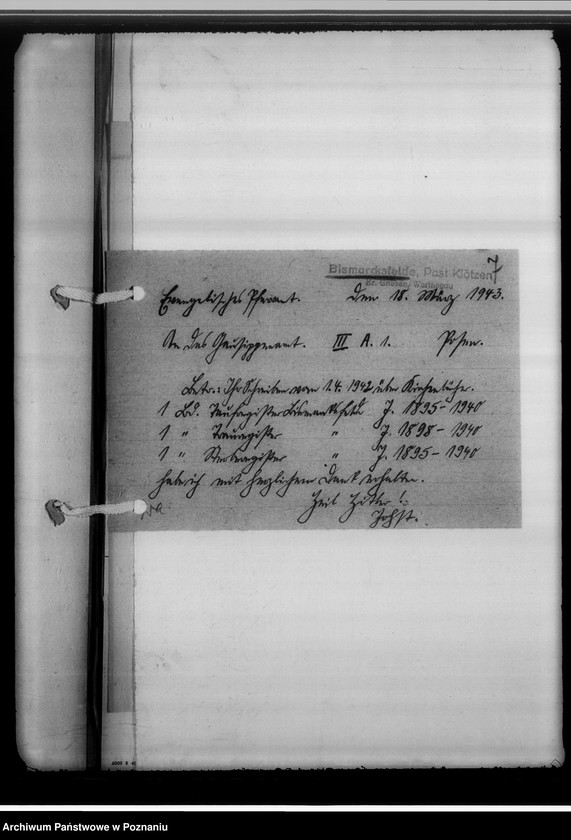 7
Bismarcksfelde, Post Klötzen
Kr. Gnesen, Warthegau
Evangelisches Pfarramt. den 18. März 1943.
An das Gausippenamt. III A. 1. Posen.
Betr.: Ihr Schreiben vom 1.4.1942 über Kirchenbuhr.
1 Bd. Taufregister Bismarcksfelde J. 1895-1940
1 " Trauregister " J. 1898-1940
1 " Sterberegister " J. 1895-1940
habe ich mit herzlichem Dank erhalten.
Heil Hitler!
Johst.
Archiwum Państwowe w Poznaniu